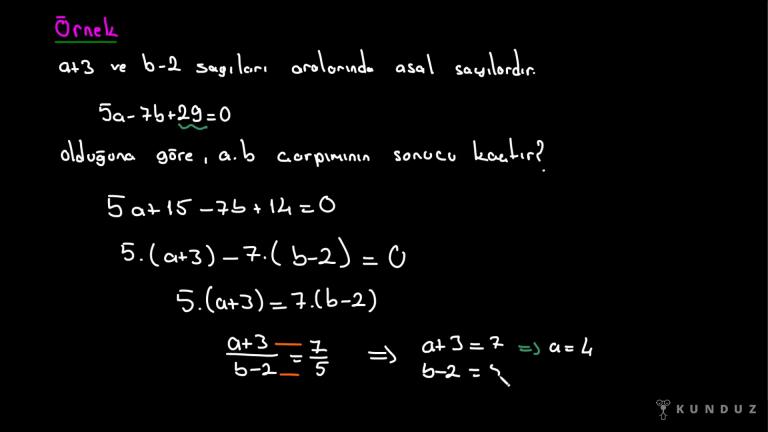 Örnek
a+3 ve b-2 sayıları aralarında asal sayılardır.
5a-7b+29=0
olduğuna göre, a.b çarpımının sonucu kaçtır?
5a+15-7b+14=0
5.(a+3)-7.(b-2)=0
5.(a+3)=7.(b-2)
a+3/b-2 = 7/5 ⇒ a+3=7 ⇒ a=4
b-2=
KUNDUZ